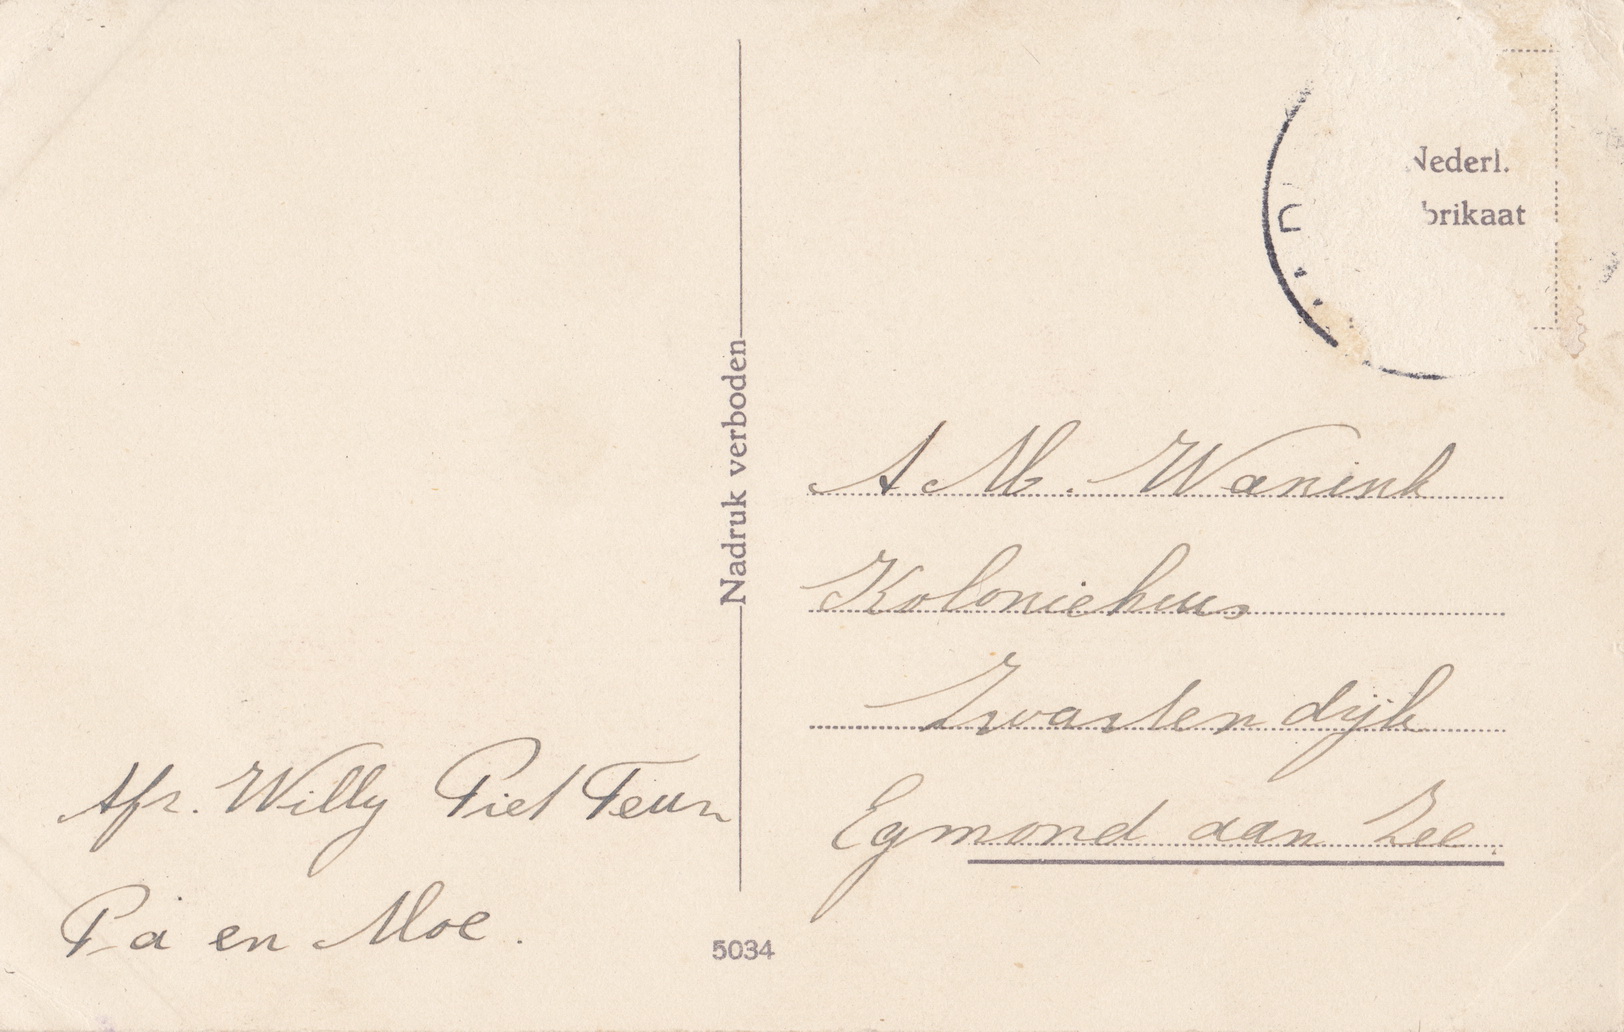 Nederl.
brikaat
Nadruk verboden
A M. Wanink
Koloniehuis
Zwartendijk
Egmond aan Zee.
Afz. Willy Piet Teun
Pa en Moe.
5034